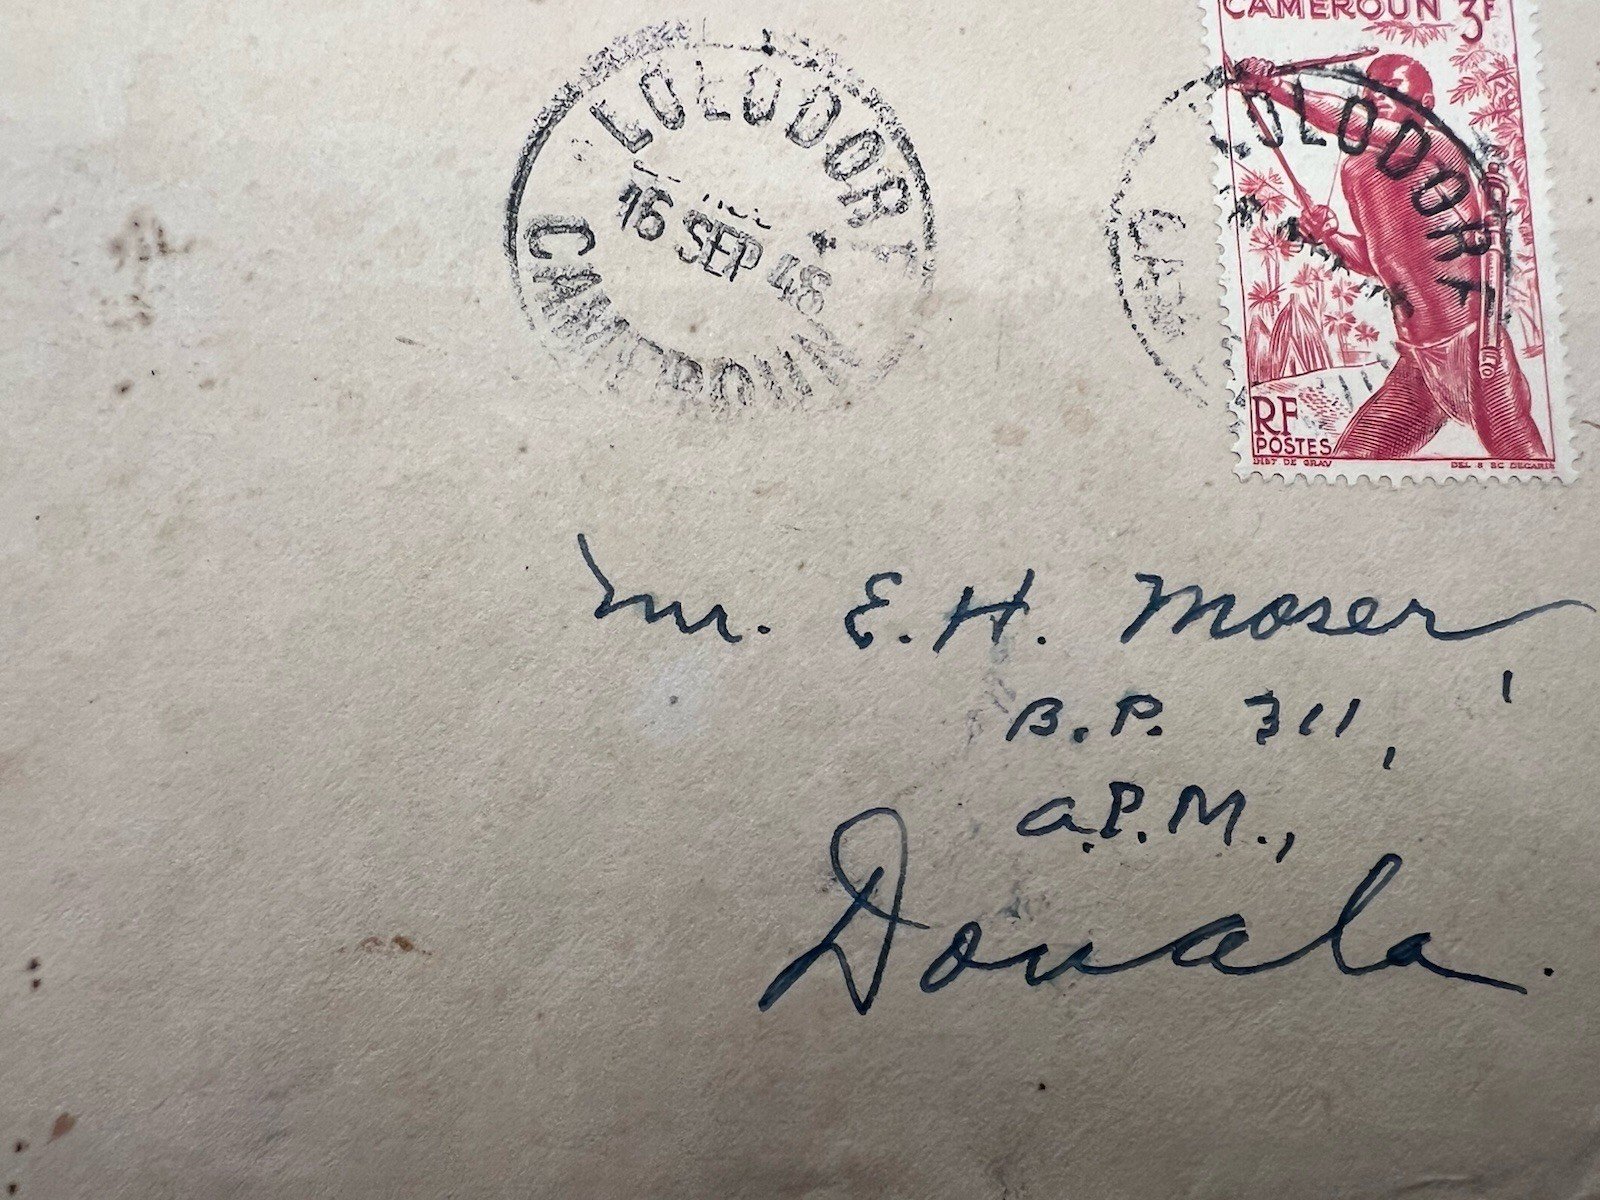 CAMEROUN 3F
LOLODORF
16 SEP 48
CAMEROUN
LOLODORF
CAM
RF
POSTES
INST DE GRAV
DEL & SC DECARIS
Mr. E. H. Moser,
B.P. 311,
a.P.M.,
Douala.